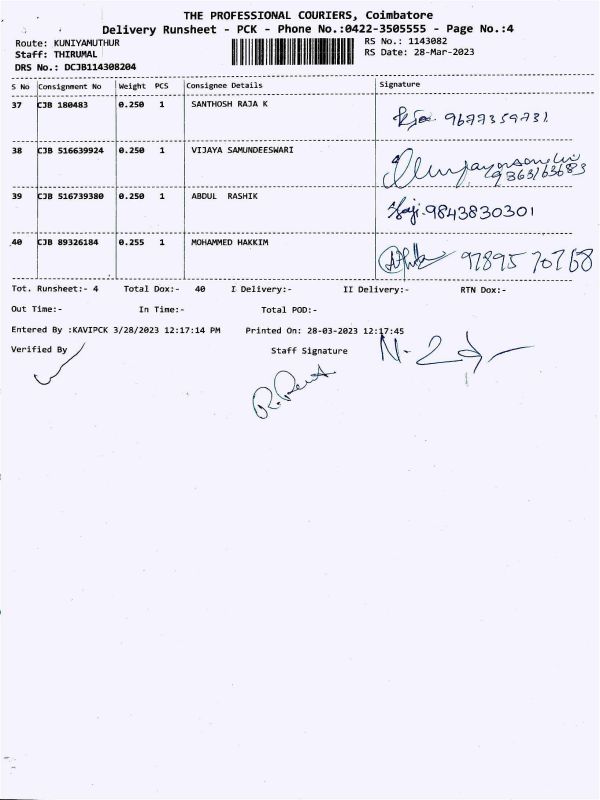 THE PROFESSIONAL COURIERS, Coimbatore
Delivery Runsheet - PCK - Phone No.:0422-3505555 - Page No.:4
Route: KUNIYAMUTHUR RS No.: 1143082
Staff: THIRUMAL RS Date: 28-Mar-2023
DRS No.: DCJB114308204
S No Consignment No Weight PCS Consignee Details Signature
37 CJB 180483 0.250 1 SANTHOSH RAJA K 9677359731
38 CJB 516639924 0.250 1 VIJAYA SAMUNDEESWARI
9363163683
39 CJB 516739380 0.250 1 ABDUL RASHIK 9843830301
40 CJB 89326184 0.255 1 MOHAMMED HAKKIM 9789570768
Tot. Runsheet:- 4 Total Dox:- 40 I Delivery:- II Delivery:- RTN Dox:-
Out Time:- In Time:- Total POD:-
Entered By :KAVIPCK 3/28/2023 12:17:14 PM Printed On: 28-03-2023 12:17:45
Verified By Staff Signature